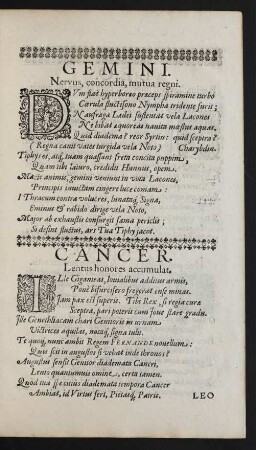 GEMINI.
Nervus, concordia, mutua regni.
DVm flat hyperboreo præceps spiramine turbo
Cærula fluctisono Nympha tridente furit;
Naufraga Ledæi sustentat vela Lacones
Ne bibat æquoreas navita mæstus aquas.
Quid diadema? reor Syrtim: quid sceptra?
(Regna canit vates turgida vela Noto) Charybdin.
Tiphyos, atq; tuam quassans freta concita puppim,
Quam tibi tauro, credidit Hunnus, opem.
Macte animis, gemini veniunt in vota Lacones,
Principis invictum cingere luce comam:
I Thracum contra volucres, lunatáq; Signa,
Eminus & rabido dirige vela Noto,
Major ab exhaustis consurgit fama periclis;
Si desint fluctus, ars Tua Tiphy jacet.
CANCER.
Lentus honores accumulat.
ILle Giganteas, Iovialibus additus armis,
Pone bifurcifero fregerat ense minas.
Iam pax est superis. Tibi Rex, si regia curæ
Sceptra, pari poteris cum Jove stare gradu.
Ille Genethliacam chari Genitoris in urnam
Victrices aquilas, noctiq; signa tulit.
Te quoq; nunc ambit Regem FERNANDE novellum:
Quis scit in augustos si vehat inde thronos?
Augustus sensit Genitor diademata Cancri,
Lento quantumuis omine, certa tamen.
Quod tua si serius diademata tempora Cancer
Ambiat, id Virtus feret, Pietasq; Patris.
LEO